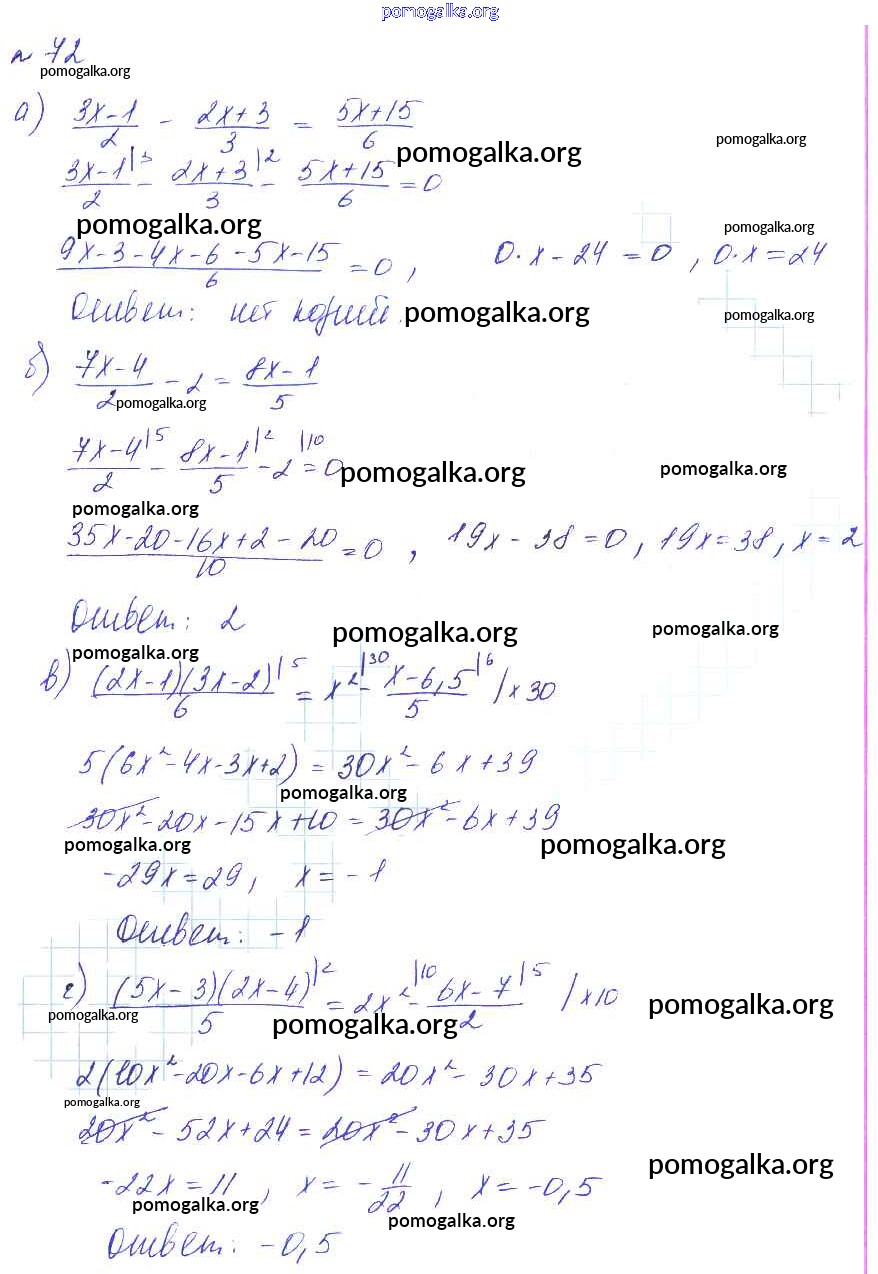 pomogalka.org
№ 72
pomogalka.org
а) (3x-1)/2 - (2x+3)/3 = (5x+15)/6
pomogalka.org pomogalka.org
(3x-1)/2 |3 - (2x+3)/3 |2 - (5x+15)/6 = 0
pomogalka.org pomogalka.org
(9x-3-4x-6-5x-15)/6 = 0, 0·x-24=0, 0·x=24
Ответ: нет корней. pomogalka.org pomogalka.org
б) (7x-4)/2 - 2 = (8x-1)/5
pomogalka.org
(7x-4)/2 |5 - (8x-1)/5 |2 - 2 |10 = 0
pomogalka.org pomogalka.org
pomogalka.org
(35x-20-16x+2-20)/10 = 0, 19x-38=0, 19x=38, x=2
Ответ: 2
pomogalka.org pomogalka.org
pomogalka.org
в) (2x-1)(3x-2)/6 |5 = x² |30 - (x-6,5)/5 |6 /x30
5(6x²-4x-3x+2) = 30x²-6x+39
pomogalka.org
30x²-20x-15x+10 = 30x²-6x+39
pomogalka.org pomogalka.org
-29x=29, x=-1
Ответ: -1
г) (5x-3)(2x-4)/5 |2 = 2x² |10 - (6x-7)/2 |5 /x10
pomogalka.org pomogalka.org pomogalka.org
2(10x²-20x-6x+12) = 20x²-30x+35
pomogalka.org
20x²-52x+24 = 20x²-30x+35
pomogalka.org
-22x=11, x=-11/22, x=-0,5
pomogalka.org pomogalka.org
Ответ: -0,5